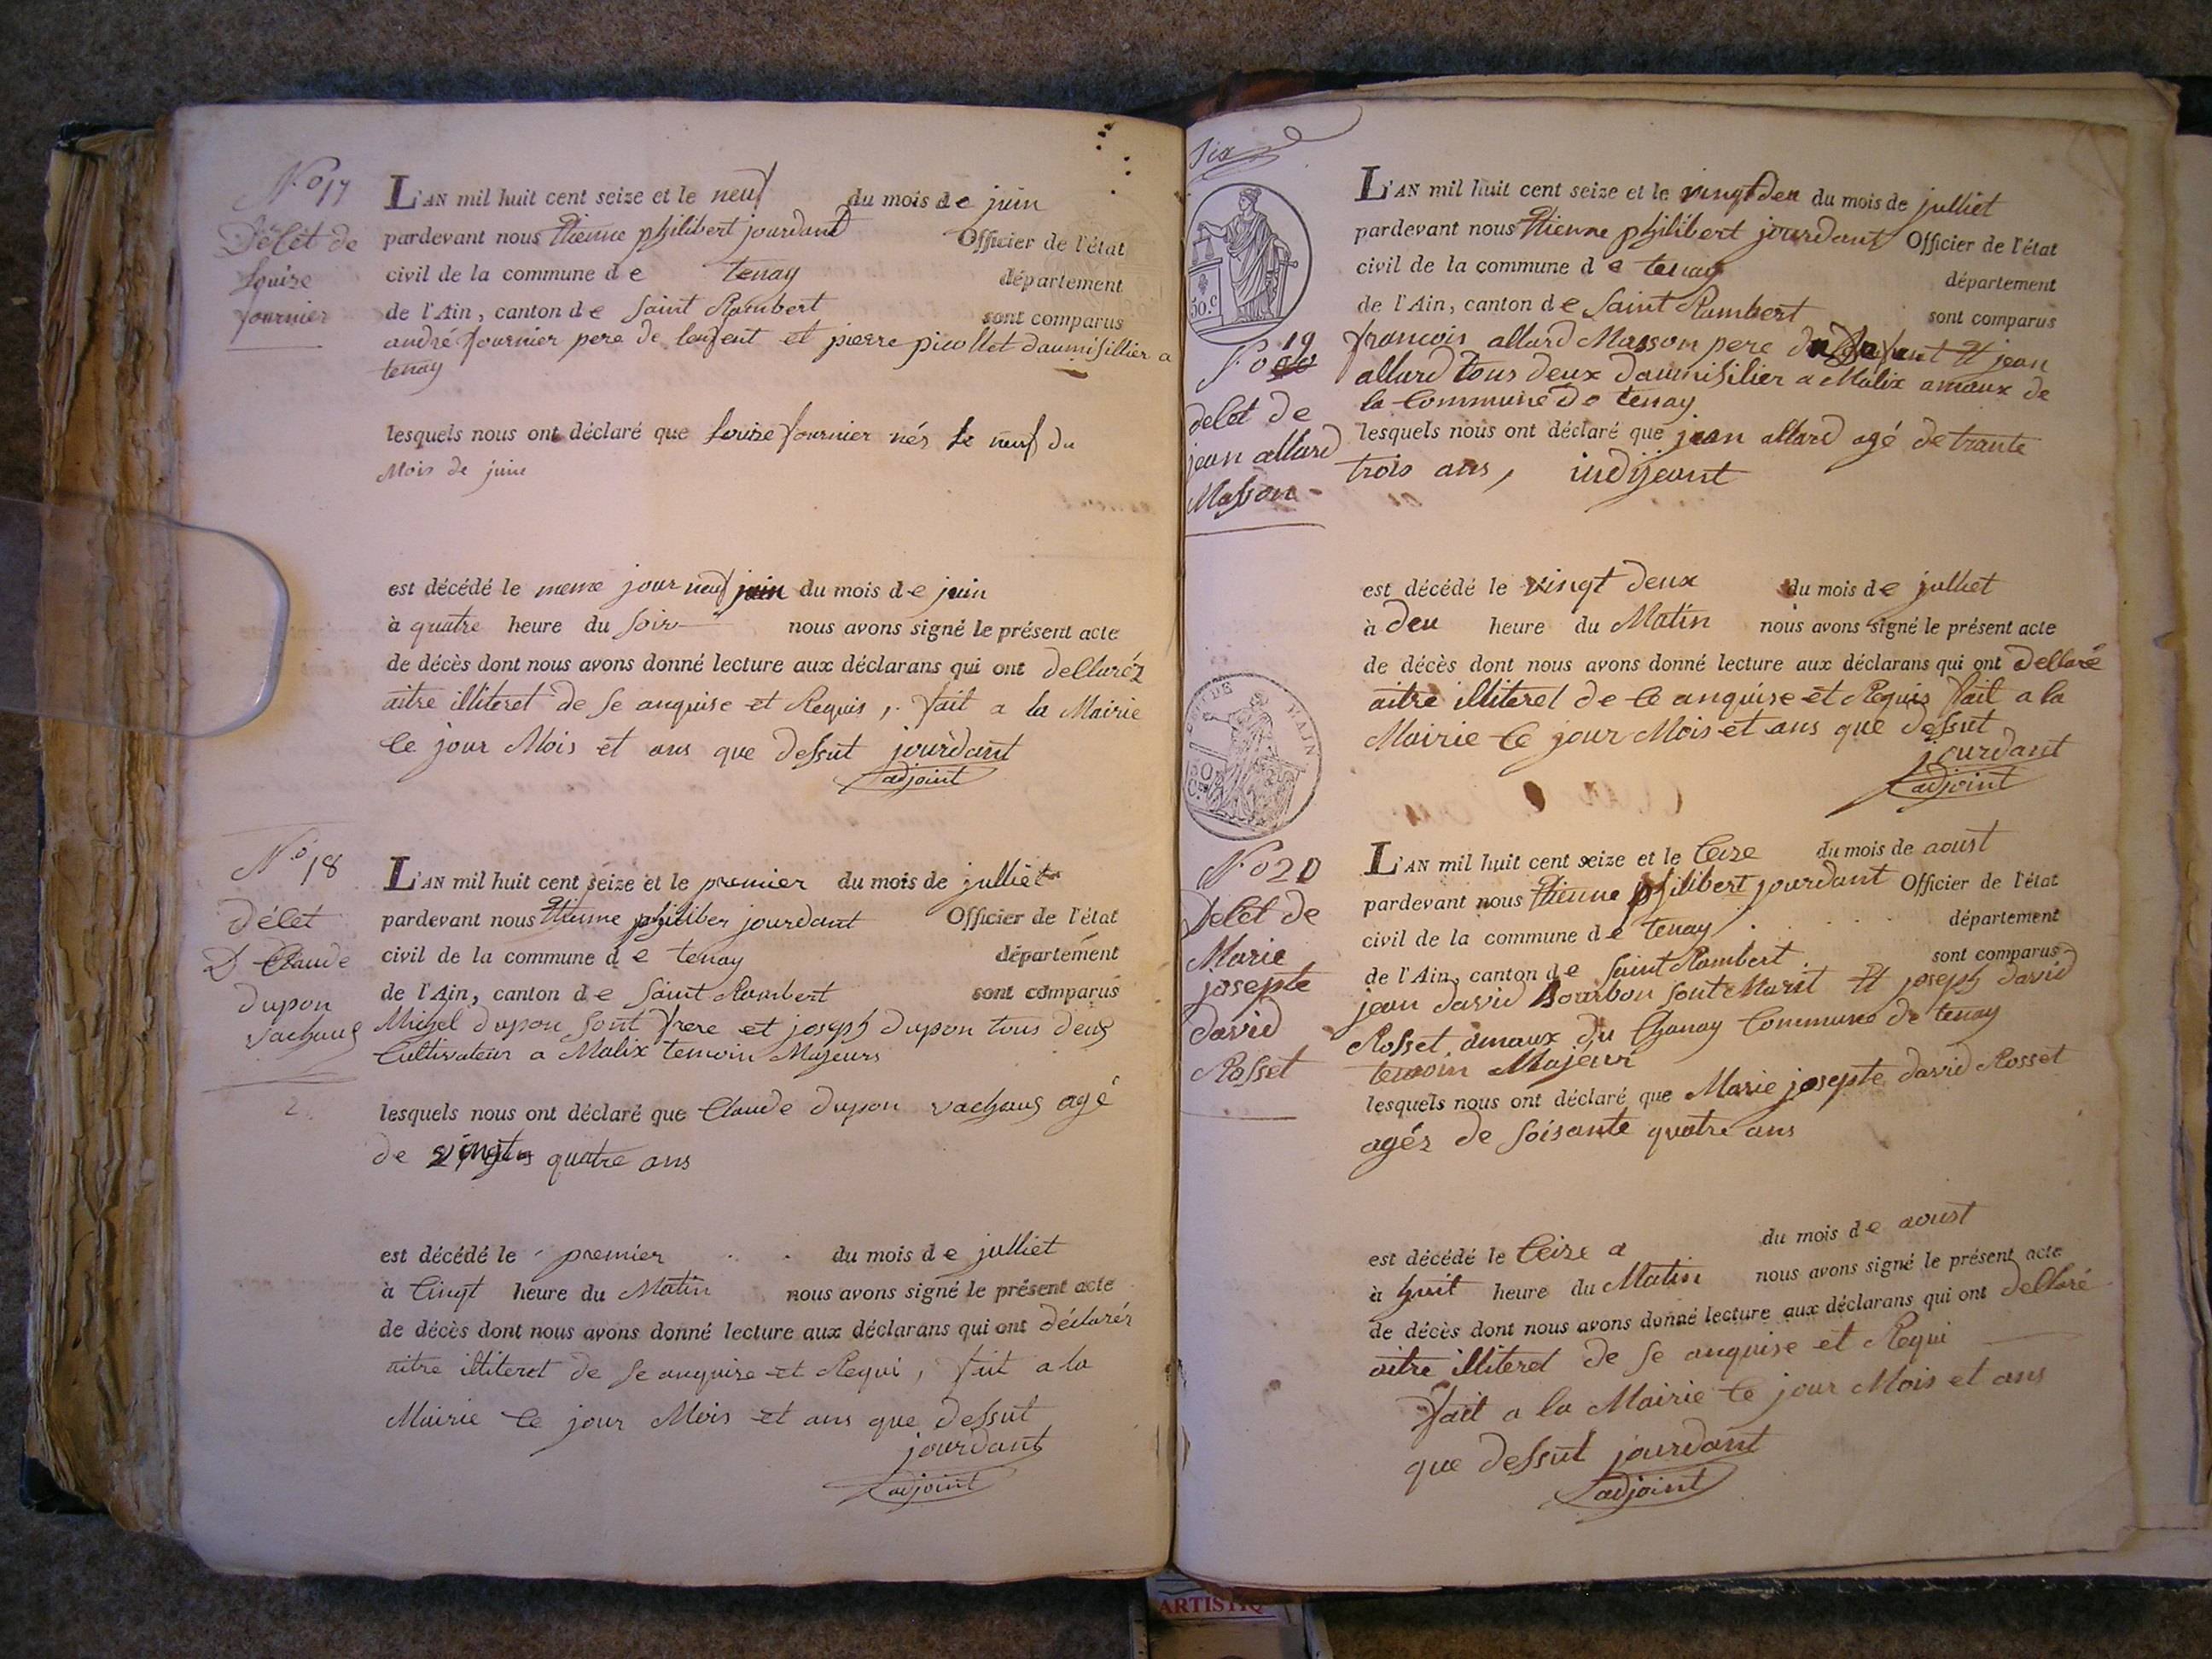 N.o 17
Délét de
Louise
fournier
L'AN mil huit cent seize et le neuf du mois de juin
pardevant nous Etienne philibert jourdant Officier de l'état
civil de la commune de tenay département
de l'Ain, canton de Saint Rambert sont comparus
andré fournier pere de lenfent et pierre picollet daumisillier a
tenay
lesquels nous ont déclaré que Louise fournier nés le neuf du
Mois de juin
est décédé le meme jour neuf juin du mois de juin
à quatre heure du soir nous avons signé le présent acte
de décès dont nous avons donné lecture aux déclarans qui ont decllaréz
aitre illiteret de se anquise et Requis, fait a la Mairie
Ce jour Mois et ans que dessut jourdant
adjoint
N.o 18
délet
D Claude
dupon
vachaus
L'AN mil huit cent seize et le premier du mois de julliet
pardevant nous Etienne philiber jourdant Officier de l'état
civil de la commune de tenay département
de l'Ain, canton de Saint Rambert sont comparus
Michel dupon sont frere et joseph dupon tous deus
Cultivateur a Malix temoin Majeurs
lesquels nous ont déclaré que Claude dupon vachaus agé
de quatre ans
est décédé le premier du mois de julliet
à Cinqt heure du Matin nous avons signé le présent acte
de décès dont nous avons donné lecture aux déclarans qui ont déclarér
aitre illiteret de se anquise et Requi, fait a la
Mairie Ce jour Mois et ans que dessut
jourdant
adjoint
Six
50.c
N.o 19
delet de
jean allard
Masson
L'AN mil huit cent seize et le vingt deu du mois de julliet
pardevant nous Etienne philibert jourdant Officier de l'état
civil de la commune de tenay département
de l'Ain, canton de Saint Rambert sont comparus
francois allard Masson pere et jean
allard tous deux daumisilier a Malix amaux de
la Commune de tenay
lesquels nous ont déclaré que jean allard agé de trante
trois ans, indijeant
est décédé le vingt deux du mois de julliet
à deu heure du Matin nous avons signé le présent acte
de décès dont nous avons donné lecture aux déclarans qui ont dellaré
aitre illiteret de Ce anquise et Requis fait a la
Mairie Ce jour Mois et ans que dessut
jourdant
adjoint
DE L'AIN.
N.o 20
Delet de
Marie
josepte
david
Rosset
L'AN mil huit cent seize et le Ceize du mois de aoust
pardevant nous Etienne philibert jourdant Officier de l'état
civil de la commune de tenay département
de l'Ain, canton de Saint Rambert sont comparus
jean david Bourbon sont Marit Et joseph david
Rosset amaux du Chanay Commune de tenay
temoin Majeur
lesquels nous ont déclaré que Marie josepte david Rosset
agéz de soisante quatre ans
est décédé le Ceize a du mois de aoust
à huit heure du Matin nous avons signé le présent acte
de décès dont nous avons donné lecture aux déclarans qui ont dellaré
aitre illiteret de se anquise et Requi
fait a la Mairie Ce jour Mois et ans
que dessut jourdant
adjoint
ARTISTIQ